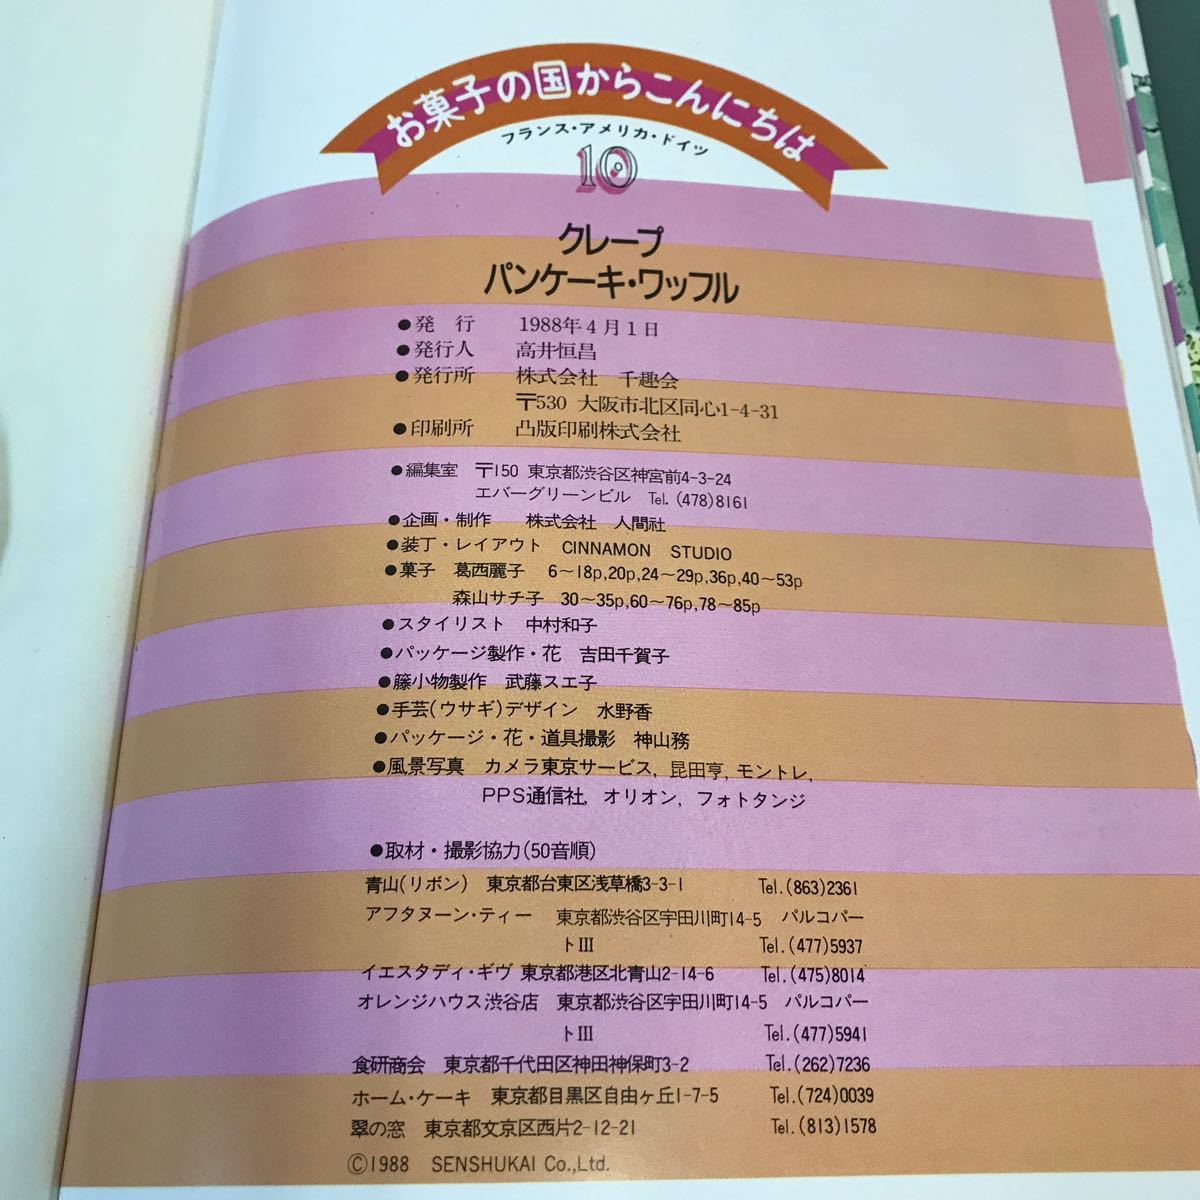 お菓子の国からこんにちは
フランス・アメリカ・ドイツ
10
クレープ
パンケーキ・ワッフル
●発 行 1988年4月1日
●発行人 高井恒昌
●発行所 株式会社 千趣会
〒530 大阪市北区同心1-4-31
●印刷所 凸版印刷株式会社
●編集室 〒150 東京都渋谷区神宮前4-3-24
エバーグリーンビル Tel. (478)8161
●企画・制作 株式会社 人間社
●装丁・レイアウト CINNAMON STUDIO
●菓子 葛西麗子 6〜18p,20p,24〜29p,36p,40〜53p
森山サチ子 30〜35p,60〜76p,78〜85p
●スタイリスト 中村和子
●パッケージ製作・花 吉田千賀子
●籐小物製作 武藤スエ子
●手芸(ウサギ)デザイン 水野香
●パッケージ・花・道具撮影 神山務
●風景写真 カメラ東京サービス, 昆田亨, モントレ,
PPS通信社, オリオン, フォトタンジ
●取材・撮影協力(50音順)
青山(リボン) 東京都台東区浅草橋3-3-1 Tel.(863)2361
アフタヌーン・ティー 東京都渋谷区宇田川町14-5 パルコパー
トIII Tel.(477)5937
イエスタディ・ギヴ 東京都港区北青山2-14-6 Tel.(475)8014
オレンジハウス渋谷店 東京都渋谷区宇田川町14-5 パルコパー
トIII Tel.(477)5941
食研商会 東京都千代田区神田神保町3-2 Tel.(262)7236
ホーム・ケーキ 東京都目黒区自由ヶ丘1-7-5 Tel.(724)0039
翠の窓 東京都文京区西片2-12-21 Tel.(813)1578
©1988 SENSHUKAI Co.,Ltd.